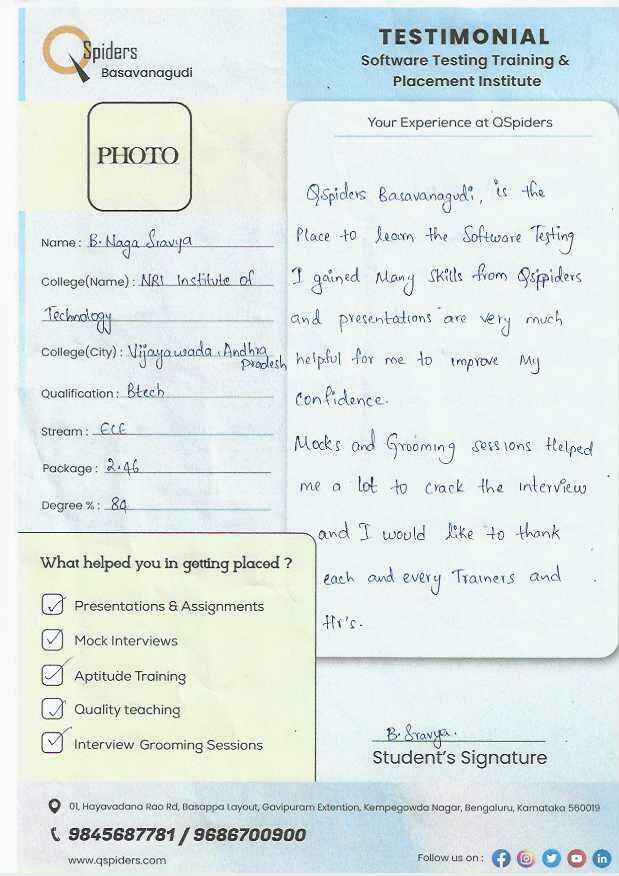 QSpiders
Basavanagudi
TESTIMONIAL
Software Testing Training &
Placement Institute
PHOTO
Name : B. Naga Sravya
College(Name) : NRI Institute of
Technology
College(City) : Vijayawada, Andhra
Pradesh
Qualification : Btech
Stream : ECE
Package : 2.46
Degree % : 84
Your Experience at QSpiders
QSpiders Basavanagudi, is the
Place to learn the Software Testing
I gained Many Skills from Qsppiders
and presentations are very much
helpful for me to improve My
Confidence.
Mocks and Grooming sessions Helped
me a lot to crack the interview
and I would like to thank
each and every Trainers and
Hr's.
What helped you in getting placed ?
Presentations & Assignments
Mock Interviews
Aptitude Training
Quality teaching
Interview Grooming Sessions
B. Sravya.
Student's Signature
01, Hayavadana Rao Rd, Basappa Layout, Gavipuram Extention, Kempegowda Nagar, Bengaluru, Karnataka 560019
9845687781 / 9686700900
www.qspiders.com
Follow us on :